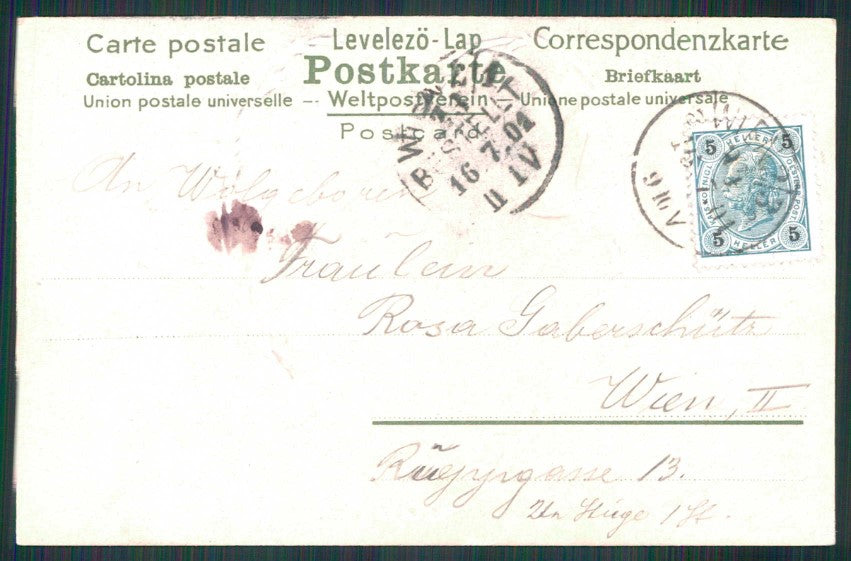 Carte postale Levelezö-Lap Correspondenzkarte
Cartolina postale Postkarte Briefkaart
Union postale universelle — Weltpostverein — Unione postale universale
Postcard
WIEN
BESTELLT
16.7.01
II IV
5 HELLER 5
5 HELLER 5
An Wolgeboren
Fräulein
Rosa Gaberschütz
Wien, II
13.